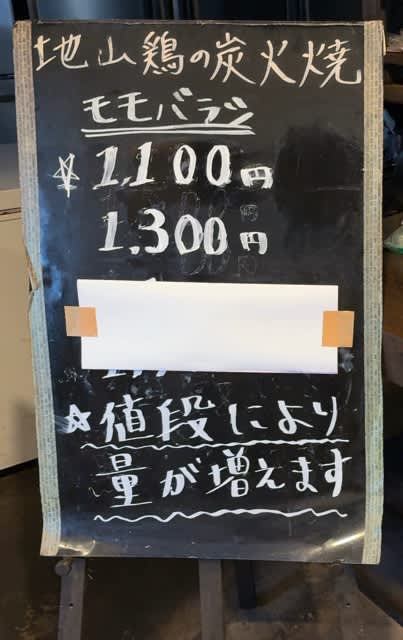 地山鶏の炭火焼
モモバラシ
☆ 1,100円
1,300円
☆値段により
量が増えます